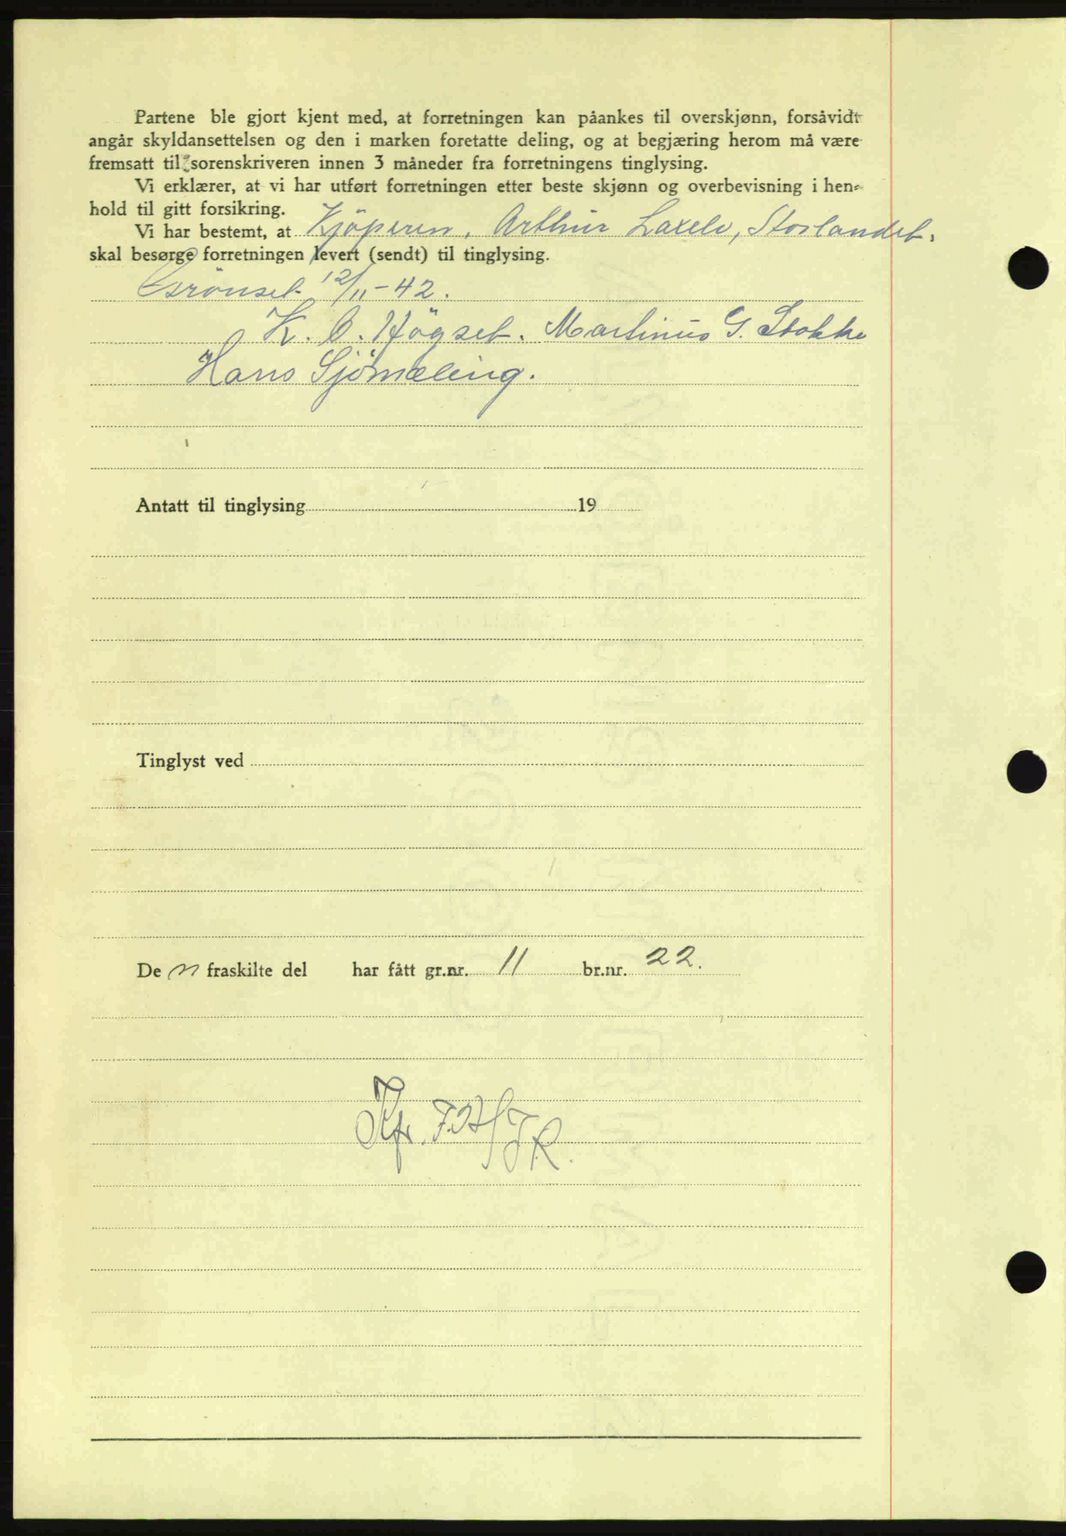 Partene ble gjort kjent med, at forretningen kan påankes til overskjønn, forsåvidt
angår skyldansettelsen og den i marken foretatte deling, og at begjæring herom må være
fremsatt til sorenskriveren innen 3 måneder fra forretningens tinglysing.
Vi erklærer, at vi har utført forretningen etter beste skjønn og overbevisning i hen-
hold til gitt forsikring.
Vi har bestemt, at Kjöperen, Arthur Laxelv, Storlandet,
skal besørge forretningen levert (sendt) til tinglysing.
Grönset 12/11-42.
K. O. Högset. Martinus G. Stokke
Hans Sjömæling.
Antatt til tinglysing 19
Tinglyst ved
De n fraskilte del har fått gr.nr. 11 br.nr. 22.
Kfr.